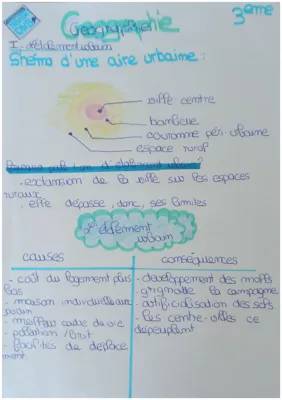 Géographie
3eme
I - étalement urbain
Shéma d'une aire urbaine :
ville centre
banlieue
couronne péri-urbaine
espace rural
Pourquoi parle t-on d'étalement urbain ?
- expansion de la ville sur les espaces
ruraux
- elle dépasse, donc, ses limites
l'étalement
urbain
causes
conséquences
- coût du logement plus
bas
- maison individuelle
- meilleur cadre de vie
- pollution / bruit
- facilités de déplace
ment
- développement des
- grignote la campagne
- artificialisation des sols
- les centre-villes ce
dépeuplent